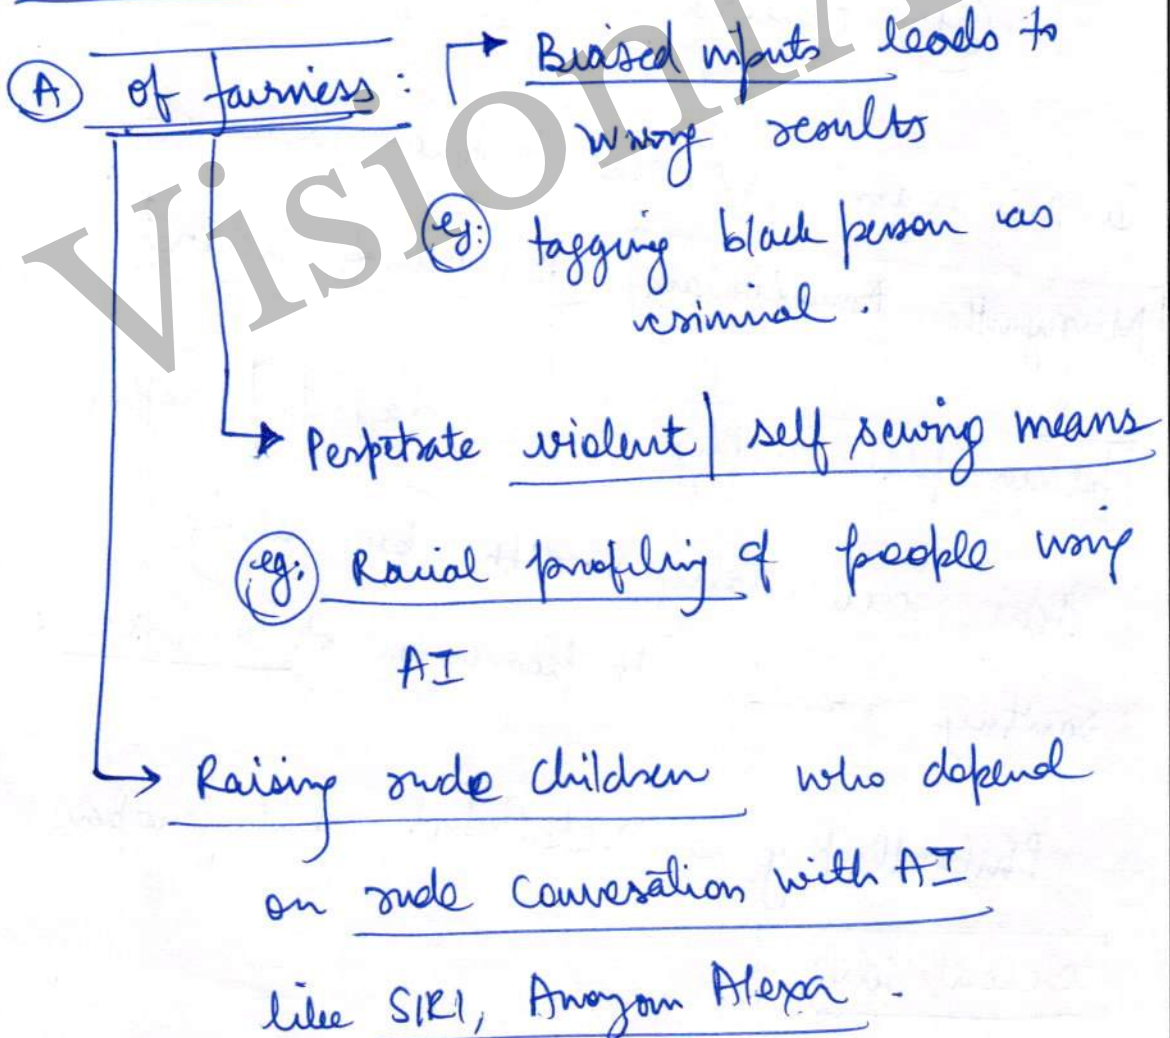 (A) of fairness:
Biased inputs leads to
wrong results
eg: tagging black person as
criminal.
Perpetrate violent | self serving means
eg: Racial profiling of people using
AI
Raising rude children who depend
on rude Conversation with AI
like SIRI, Amazon Alexa.
VisionIA